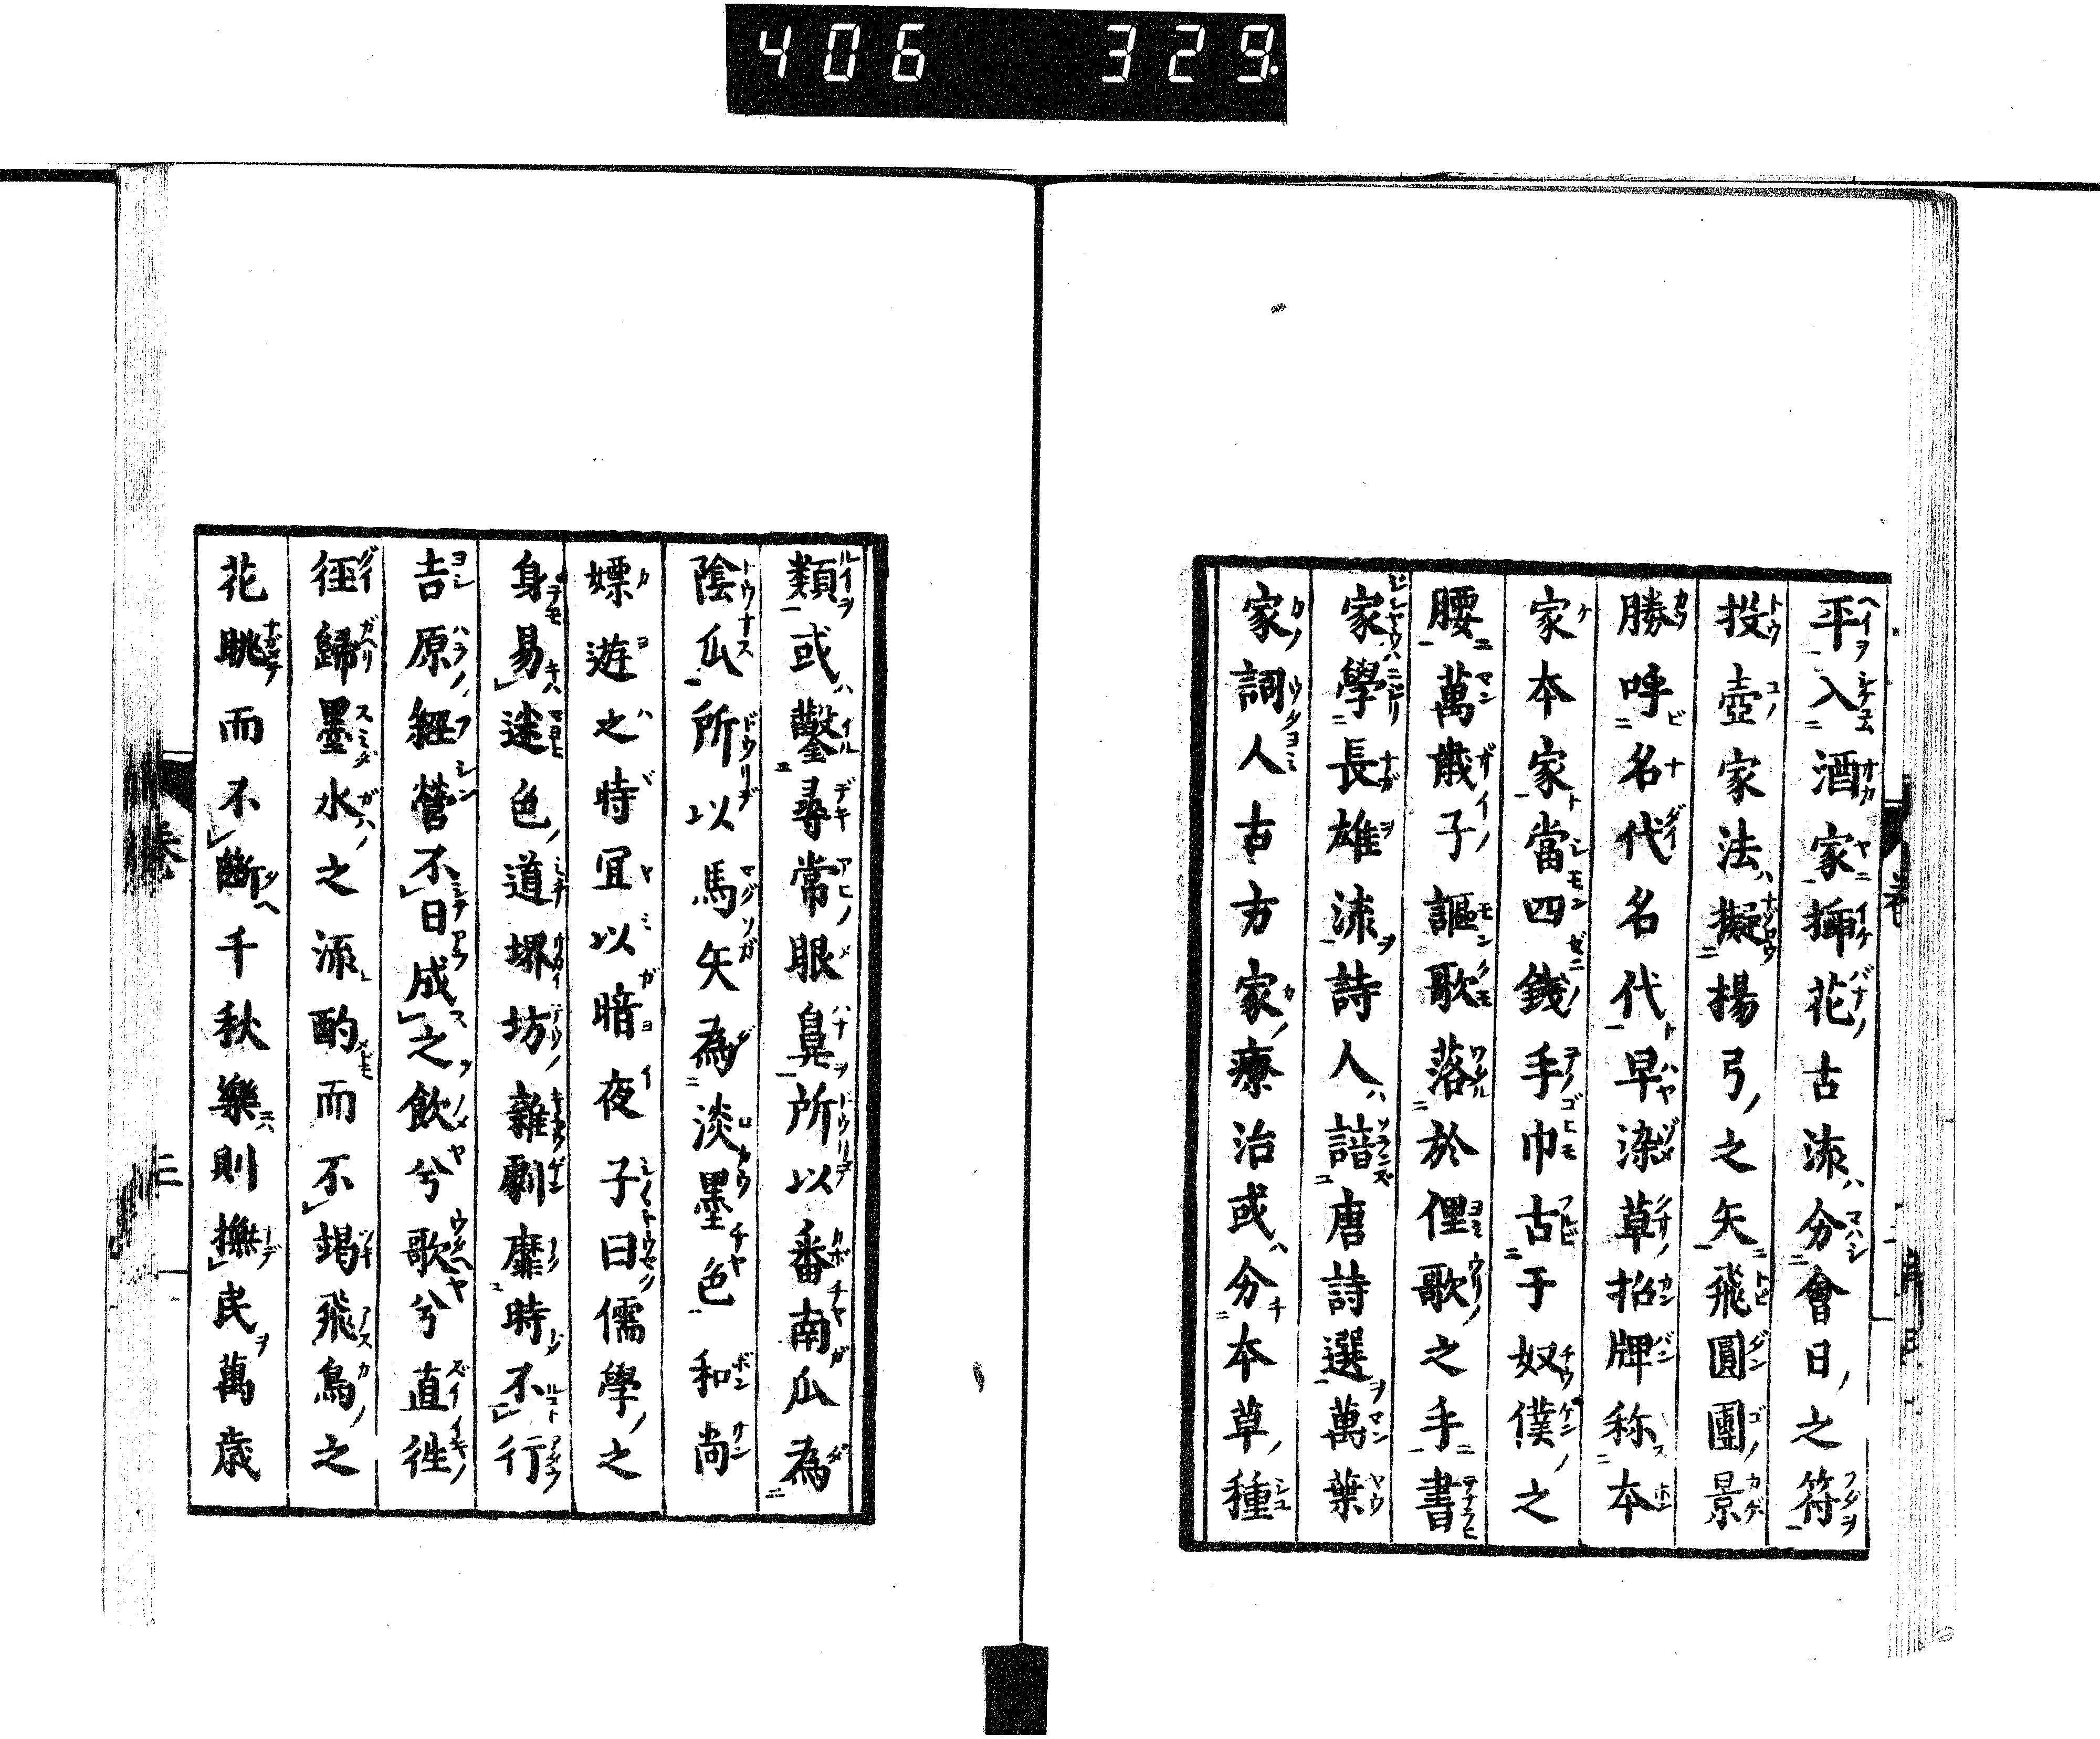 406 329.
平入酒家揷花古流分會日之符
投壺家法擬楊弓之矢飛圓團景
勝呼名代名代早染草招牌称本
家本家當四錢手巾古于奴僕之
腰萬歳子謳歌落於俚歌之手書
家學長雄流詩人諧唐詩選萬葉
家詞人古方家療治或分本草種
類或鑿尋常眼鼻所以番南瓜為
陰瓜所以馬矢為淡墨色和尚
嫖遊之時冝以暗夜子曰儒學之
身易迷色道堺坊雜劇靡時不行
吉原経營不日成之飲兮歌兮直徃
徑歸墨水之流酌而不竭飛鳥之
花眺而不斷千秋樂則撫民萬歳
二